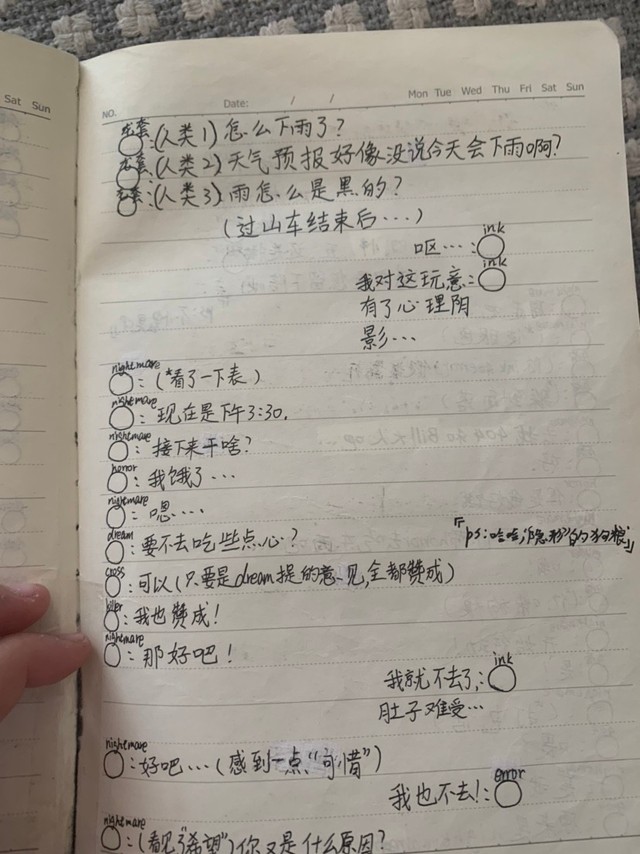 Sat Sun
NO. Date: / / Mon Tue Wed Thu Fri Sat Sun
龙套:(人类1)怎么下雨了?
龙套:(人类2)天气预报好像没说今天会下雨啊?
龙套:(人类3)雨怎么是黑的?
(过山车结束后…)
呕…:ink
我对这玩意:ink
有了心理阴
影…
nightmare:(*看了一下表)
nightmare:现在是下午3:30.
nightmare:接下来干啥?
horror:我饿了…
nightmare:嗯….
dream:要不去吃些点心?
『ps:哈哈,'隐形'的狗粮』
cross:可以(只要是dream提的意见,全都赞成)
killer:我也赞成!
nightmare:那好吧!
我就不去了,:ink
肚子难受…
nightmare:好吧…(感到一点“可惜”)
我也不去!:error
nightmare:(看见了“希望”)你又是什么原因?